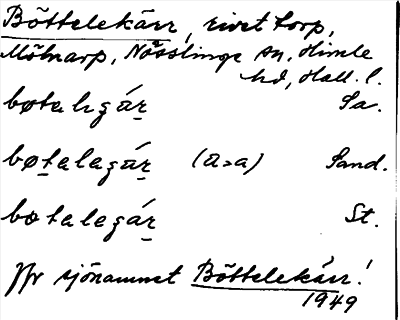 Böttelekärr, rivet torp,
Mölnarp, Nösslinge sn, Himle
hd, Hall. l.
bøtalegár Sa.
bøtalegár (a>a) Sand.
bøtalegár St.
Jfr sjönamnet Böttelekärr!
1949